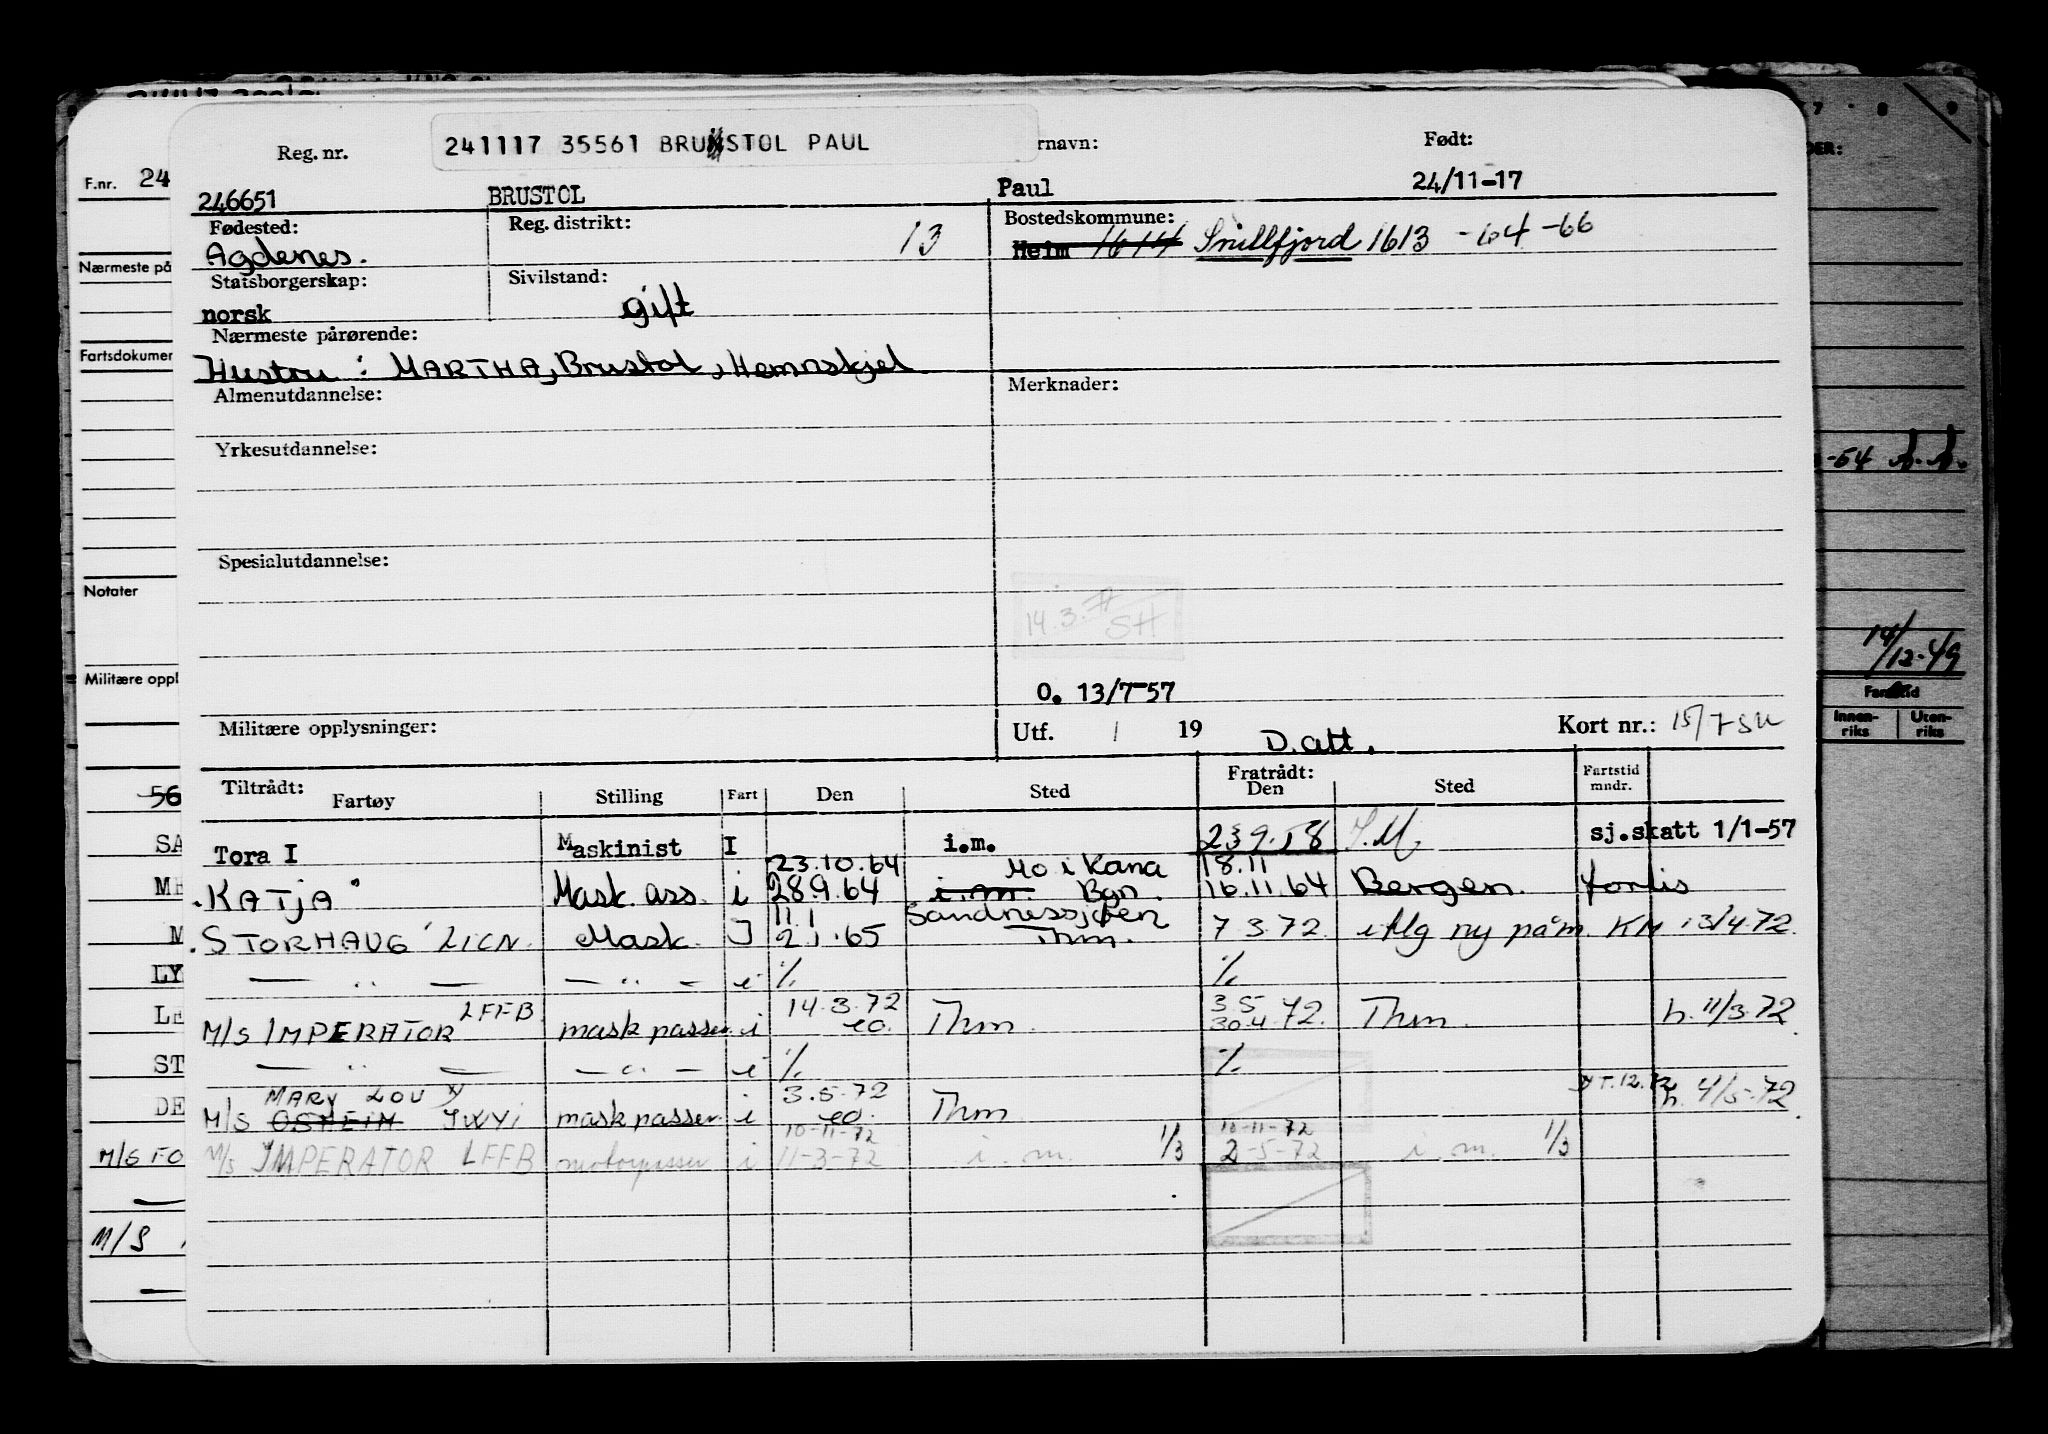 241117 35561 BRUNSTOL PAUL
Reg. nr. rnavn: Født:
246651 BRUSTOL Paul 24/11-17
Fødested: Reg. distrikt: Bostedskommune:
Agdenes. 13 Heim 1614 Snillfjord 1613 -64 -66
Statsborgerskap: Sivilstand:
norsk gift
Nærmeste pårørende:
Hustru : MARTHA, Brustol, Hemnskjel
Almenutdannelse: Merknader:
Yrkesutdannelse:
Spesialutdannelse:
14.3. SH
O. 13/7-57
Militære opplysninger: Utf. / 19 D. att. Kort nr.: 15/7 SH
Tiltrådt: Fratrådt: Fartstid
Fartøy Stilling Fart Den Sted Den Sted mndr.
Tora I Maskinist I i.m. 23 9.58 I.M sj.skatt 1/1-57
23.10.64 Mo i Rana 18.11
KATJA Mask. ass. i 28.9.64 i.m. Bgn. 16.11.64 Bergen. forlis
11.1 Sandnessjøen
STORHAUG LICN. Mask. I 2.1.65 Thm. 7.3.72 i flg ny påm. KM 13/4.72
— " — — " — i % %
LFFB 14.3.72 3.5
M/S IMPERATOR mask passer i eo. Thm. 30.4.72. Thm. h. 11/3.72
— " — — " — i % %
MARY LOU 3.5.72 T.12.72
M/S OSHEIM JWYI mask passer i eo. Thm h. 4/5-72
10-11-72 1/3 10-11-72 1/3
M/S IMPERATOR LFFB motorpasser i 11-3-72 i.m. 2-5-72 i.m.
F.nr. 24
Nærmeste på
Fartsdokumen
Notater
Militære oppl
56
SA
ME
M
LY
LE
ST
DE
M/S FO
M/S
7 8 9
DER:
-54
14/12-49
Fartstid
Innen-riks Uten-riks